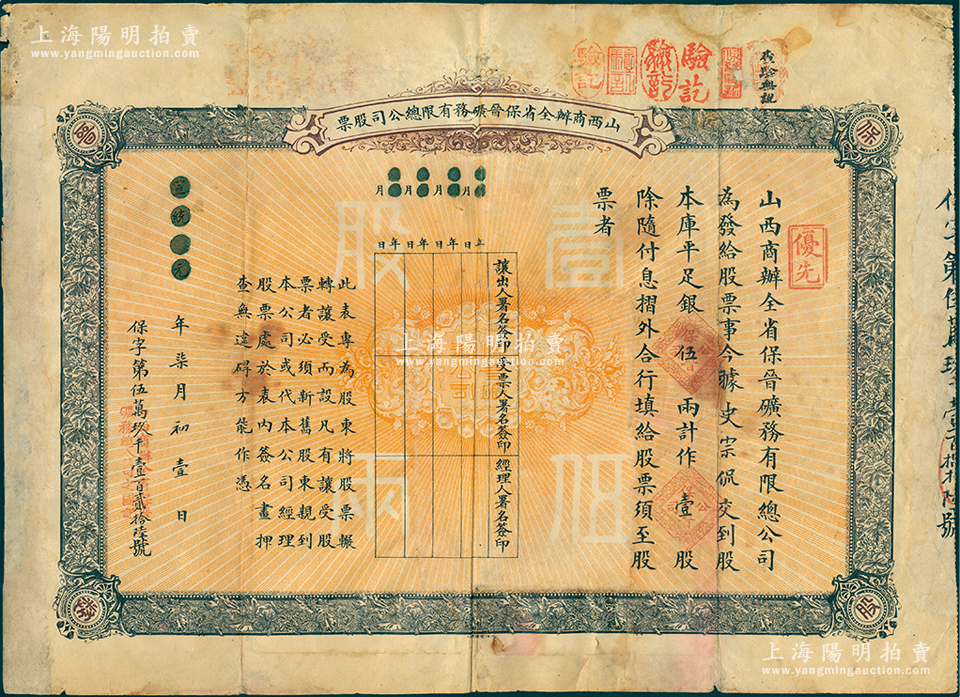 上海陽明拍賣
www.yangmingauction.com
上海陽明拍賣
www.yangmingauction.com
驗訖
驗訖
驗訖
查驗無訛
山西商辦全省保晉礦務有限總公司股票
保
晉
股
票
優先
山西商辦全省保晉礦務有限總公司
為發給股票事今據史宗侃交到股
本庫平足銀伍兩計作壹股
除隨付息摺外合行填給股票須至股
票者
壹股
伍兩
年月日
年月日
年月日
年月日
讓出人署名簽印
受票人署名簽印
經理人署名簽印
此表專為股東將股票輾
轉讓受而設凡有讓受股
票者必須新舊股東親到
本公司或代本公司經理
股票處於表內簽名畫押
查無違碍方能作憑
宣統元年柒月初壹日
保字第伍萬玖千壹百貳拾陸號
上海陽明拍賣
www.yangmingauction.com
上海陽明拍賣
www.yangmingauction.com